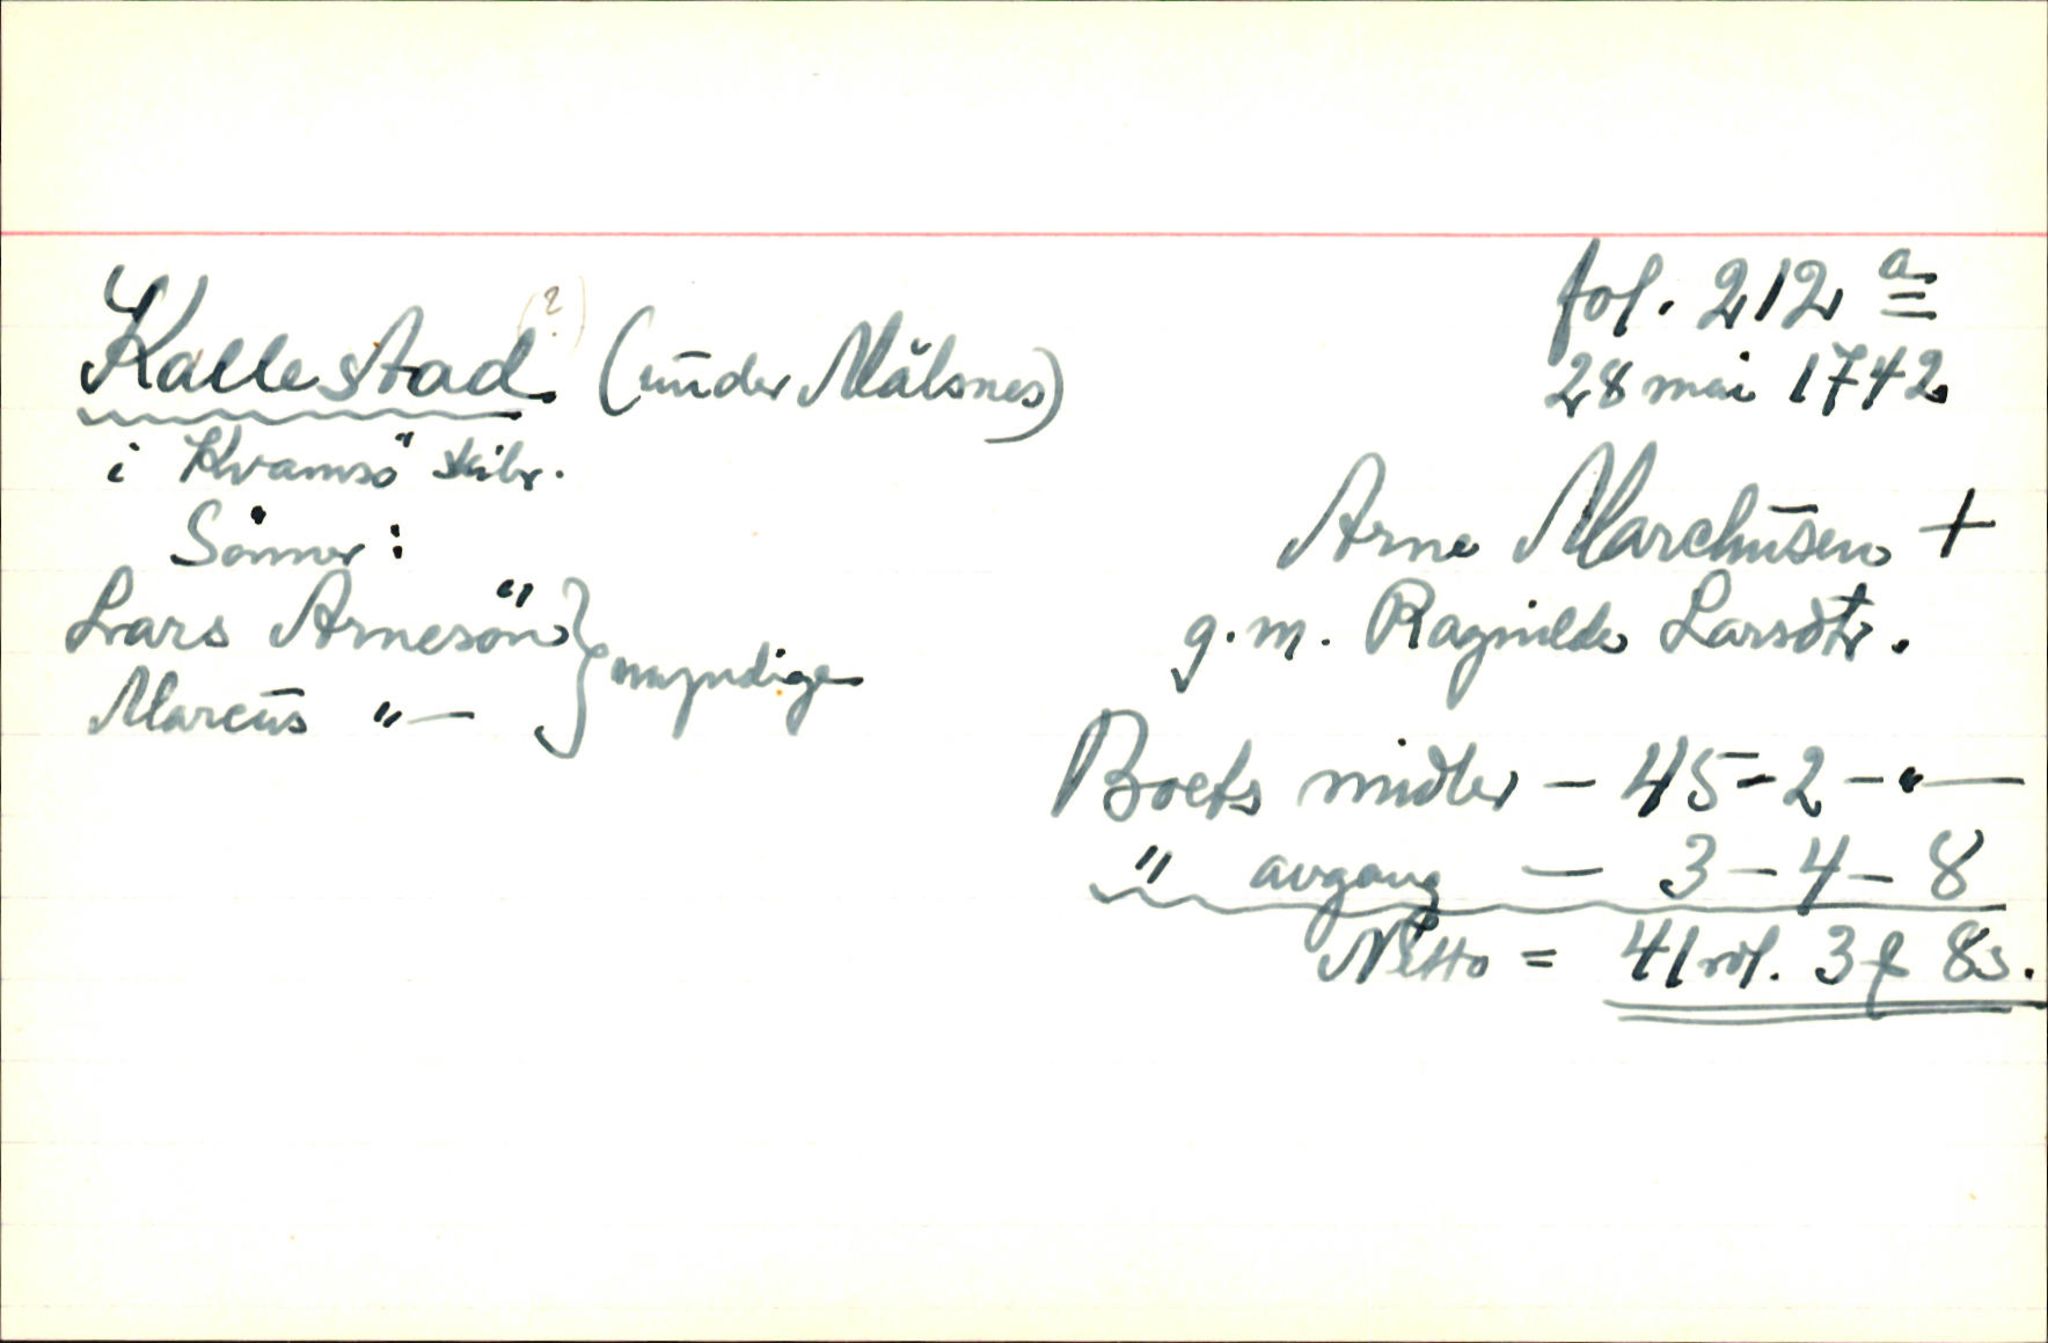 fol. 212 a
Kallestad (?) (under Målsnes)
28 mai 1742
i Kvamsö skibr.
Arne Marchusen +
Sönner:
g. m. Ragnilde Larsdtr.
Lars Arnesön } umyndige
Marcus "—
Boets midler — 45 - 2 — " —
" avgang — 3 — 4 — 8
Netto = 41 rdl. 3 8 s.